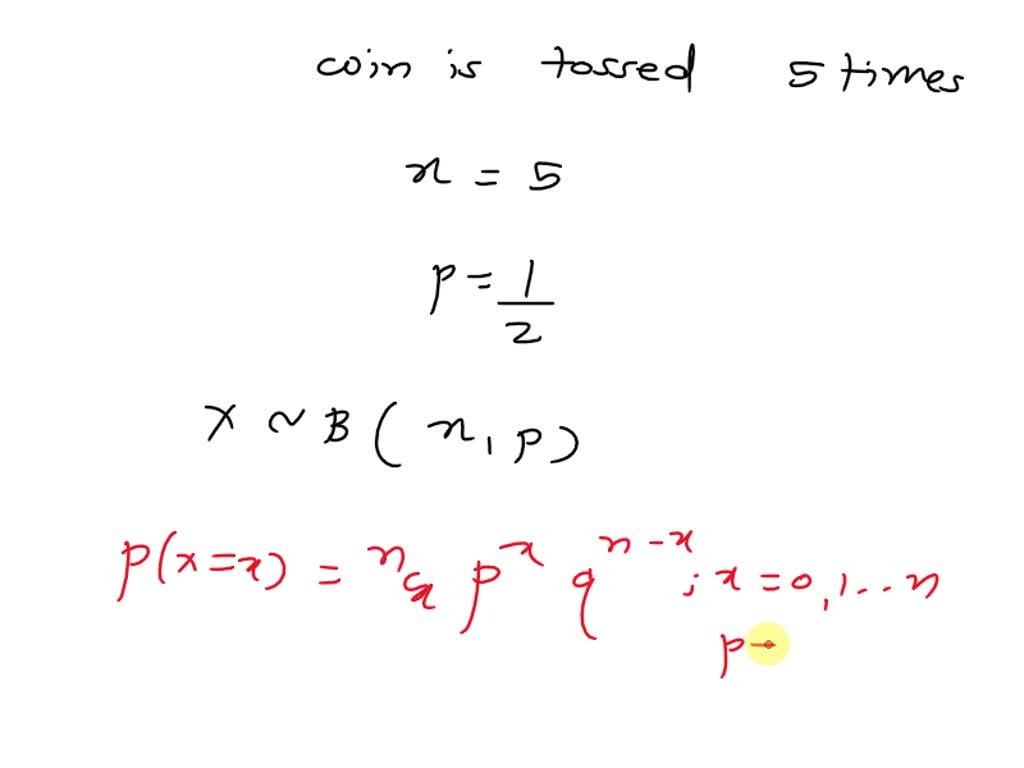 coin is tossed 5 times
n = 5
p = 1/2
X ~ B ( n, p )
P(x=x) = ⁿCₓ pˣ qⁿ⁻ˣ ; x = 0, 1 .. n
p -